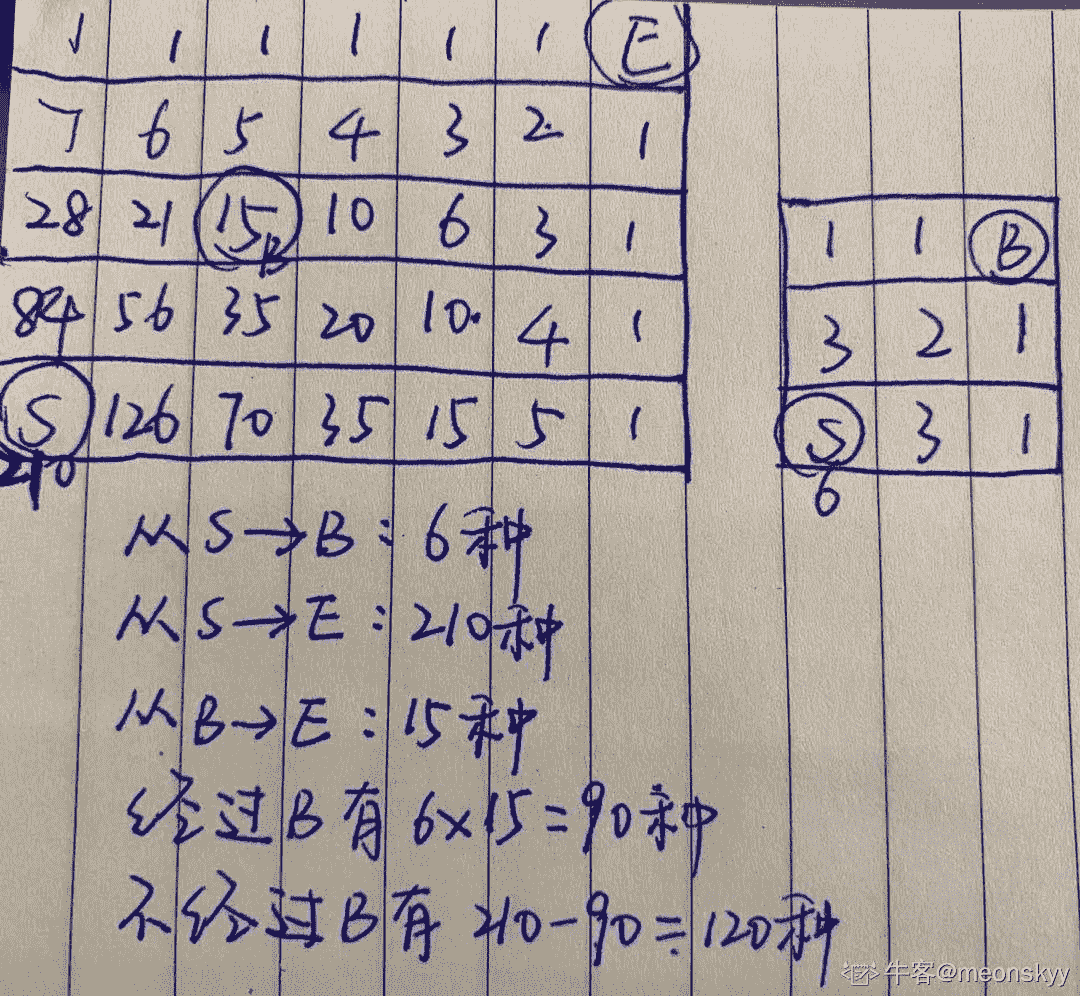 1 1 1 1 1 1 E
7 6 5 4 3 2 1
28 21 15 B 10 6 3 1
84 56 35 20 10 4 1
S 126 70 35 15 5 1
210
1 1 B
3 2 1
S 3 1
6
从S→B:6种
从S→E:210种
从B→E:15种
经过B有6×15=90种
不经过B有210-90=120种
牛客@meonskyy